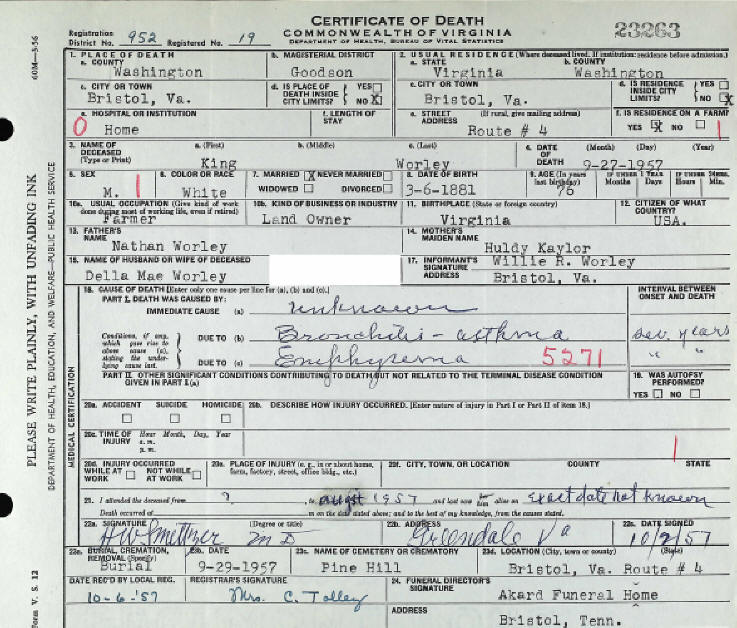 CERTIFICATE OF DEATH
COMMONWEALTH OF VIRGINIA
DEPARTMENT OF HEALTH, BUREAU OF VITAL STATISTICS
23263
Registration District No. 952 Registered No. 19
60M—5-56
PLEASE WRITE PLAINLY, WITH UNFADING INK
DEPARTMENT OF HEALTH, EDUCATION, AND WELFARE—PUBLIC HEALTH SERVICE
Form V. S. 12
1. PLACE OF DEATH
a. COUNTY
Washington
b. MAGISTERIAL DISTRICT
Goodson
2. USUAL RESIDENCE (Where deceased lived. If institution: residence before admission.)
a. STATE b. COUNTY
Virginia Washington
c. CITY OR TOWN
Bristol, Va.
d. IS PLACE OF DEATH INSIDE CITY LIMITS? YES NO X
c. CITY OR TOWN
Bristol, Va.
d. IS RESIDENCE INSIDE CITY LIMITS? YES NO X
e. HOSPITAL OR INSTITUTION
0 Home
f. LENGTH OF STAY
e. STREET ADDRESS (If rural, give mailing address)
Route # 4
f. IS RESIDENCE ON A FARM?
YES X NO 1
3. NAME OF DECEASED (Type or Print)
a. (First) b. (Middle) c. (Last)
King Worley
4. DATE OF DEATH (Month) (Day) (Year)
9-27-1957
5. SEX
M. 1
6. COLOR OR RACE
White
7. MARRIED X NEVER MARRIED
WIDOWED DIVORCED
8. DATE OF BIRTH
3-6-1881
9. AGE (In years last birthday)
76
IF UNDER 1 YEAR Months Days
IF UNDER 24 Hrs. Hours Min.
10a. USUAL OCCUPATION (Give kind of work done during most of working life, even if retired)
Farmer
10b. KIND OF BUSINESS OR INDUSTRY
Land Owner
11. BIRTHPLACE (State or foreign country)
Virginia
12. CITIZEN OF WHAT COUNTRY?
USA.
13. FATHER'S NAME
Nathan Worley
14. MOTHER'S MAIDEN NAME
Huldy Kaylor
15. NAME OF HUSBAND OR WIFE OF DECEASED
Della Mae Worley
17. INFORMANT'S SIGNATURE Willie R. Worley
ADDRESS Bristol, Va.
MEDICAL CERTIFICATION
18. CAUSE OF DEATH [Enter only one cause per line for (a), (b) and (c).]
INTERVAL BETWEEN ONSET AND DEATH
PART I. DEATH WAS CAUSED BY:
IMMEDIATE CAUSE (a) unknown
Conditions, if any, which gave rise to above cause (a), stating the underlying cause last.
DUE TO (b) Bronchitis - asthma sev. years
DUE TO (c) Emphysema 5271 " "
PART II. OTHER SIGNIFICANT CONDITIONS CONTRIBUTING TO DEATH BUT NOT RELATED TO THE TERMINAL DISEASE CONDITION GIVEN IN PART I.(a)
19. WAS AUTOPSY PERFORMED?
YES NO
20a. ACCIDENT SUICIDE HOMICIDE
20b. DESCRIBE HOW INJURY OCCURRED. [Enter nature of injury in Part I or Part II of item 18.]
20c. TIME OF INJURY Hour Month, Day, Year
a. m.
p. m.
1
20d. INJURY OCCURRED
WHILE AT WORK NOT WHILE AT WORK
20e. PLACE OF INJURY (e. g., in or about home, farm, factory, street, office bldg., etc.)
20f. CITY, TOWN, OR LOCATION COUNTY STATE
21. I attended the deceased from ? , to august 1957 and last saw him alive on exact date not known
Death occurred at m on the date stated above; and to the best of my knowledge, from the causes stated.
22a. SIGNATURE (Degree or title)
M D
22b. ADDRESS
Greendale Va
22c. DATE SIGNED
10/2/57
23a. BURIAL, CREMATION, REMOVAL (Specify)
Burial
23b. DATE
9-29-1957
23c. NAME OF CEMETERY OR CREMATORY
Pine Hill
23d. LOCATION (City, town or county) (State)
Bristol, Va. Route # 4
DATE REC'D BY LOCAL REG.
10-6-'57
REGISTRAR'S SIGNATURE
Mrs. C. Tolley
24. FUNERAL DIRECTOR'S SIGNATURE
Akard Funeral Home
ADDRESS
Bristol, Tenn.